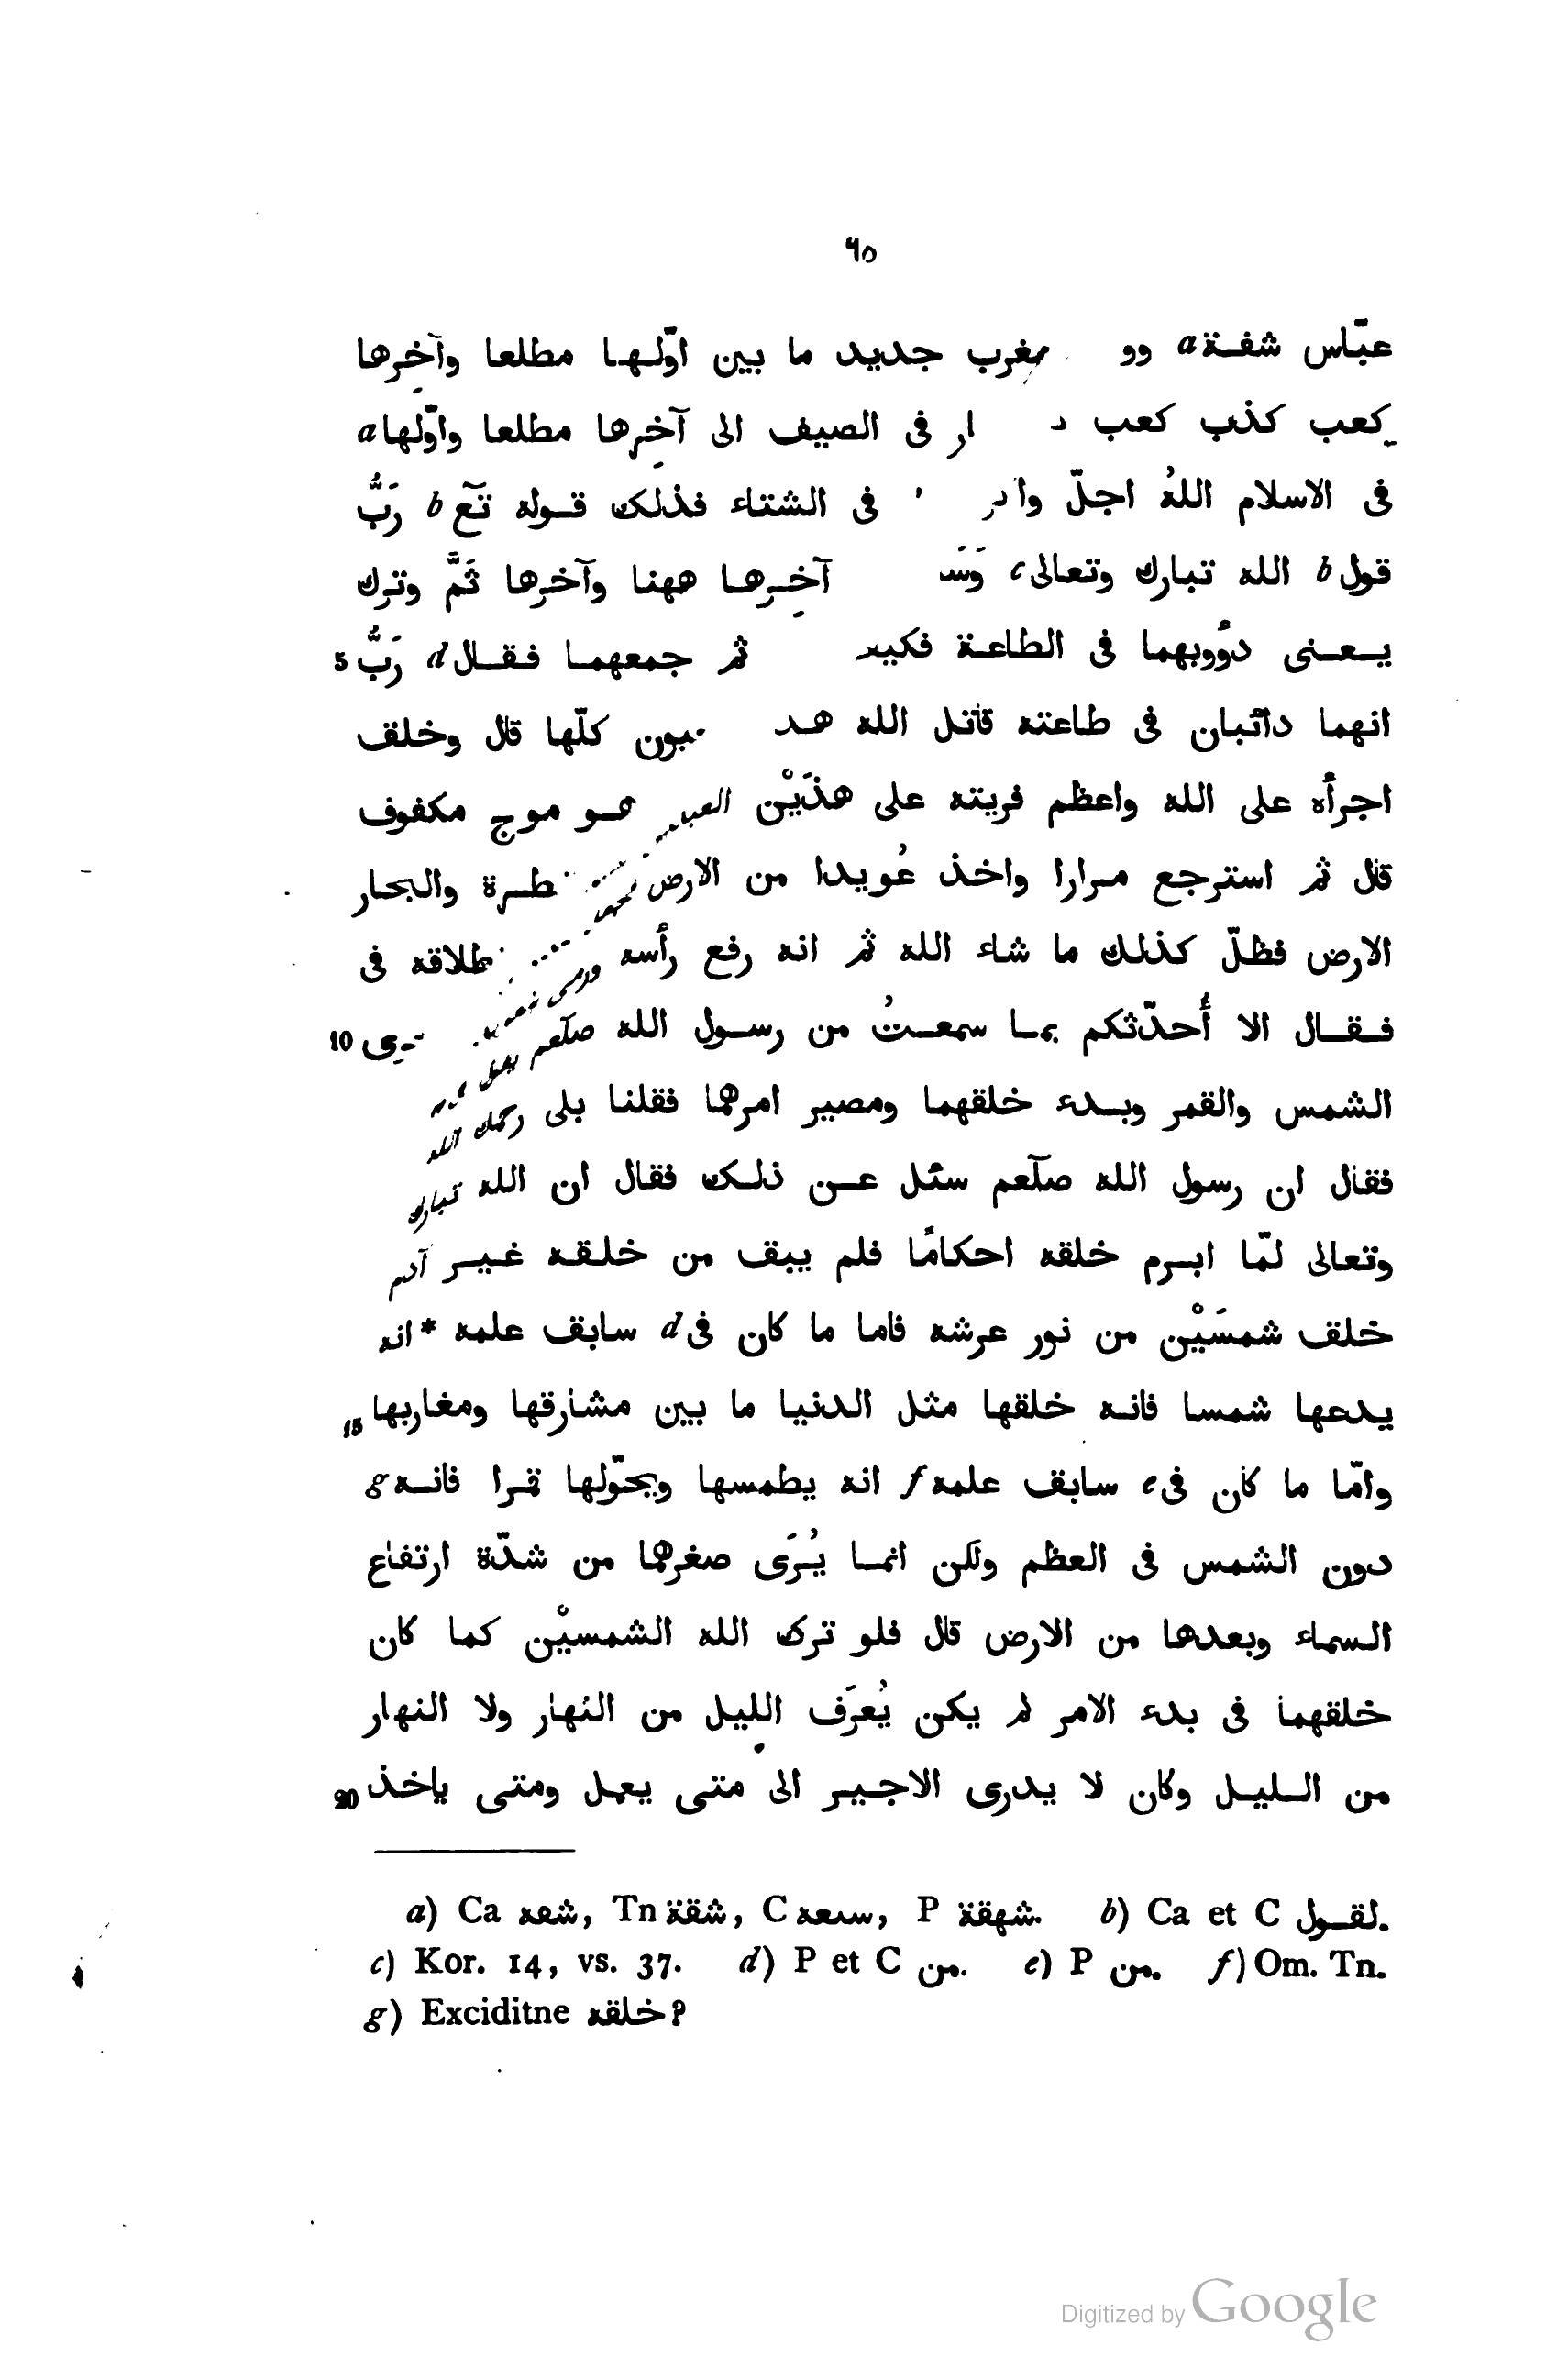 ٦٥
عبّاس شفة a مغرب جديد ما بين اوّلها مطلعا وآخرها
كعب كذب كعب فى الصيف الى آخرها مطلعا واوّلها a
فى الاسلام اللهُ اجلّ فى الشتاء فذلك قوله تعٓ b رَبُّ
قول b الله تبارك وتعالى c آخرها ههنا وآخرها ثَمَّ وترك
يعنى دؤوبهما فى الطاعة ثم جمعهما فقال d رَبُّ 5
انهما دائبان فى طاعته قاتل الله كلّها قال وخلق
اجرأه على الله واعظم فريته على هذَيْن هو موج مكفوف
قال ثم استرجع مرارا واخذ عُويدا من الارض والبحار
الارض فظلّ كذلك ما شاء الله ثم انه رفع رأسه فى
فقال الا أُحدّثكم بما سمعتُ من رسول الله صلّعم 10
الشمس والقمر وبدء خلقهما ومصير امرهما فقلنا بلى رحمك الله
فقال ان رسول الله صلّعم سئل عن ذلك فقال ان الله تبارك
وتعالى لمّا ابرم خلقه احكامًا فلم يبق من خلقه غير آدم
خلق شمسَيْن من نور عرشه فاما ما كان فى d سابق علمه * انه
يدعها شمسا فانه خلقها مثل الدنيا ما بين مشارقها ومغاربها 15
وامّا ما كان فى e سابق علمه f انه يطمسها ويحوّلها قمرا فانه g
دون الشمس فى العظم ولكن انما يُرَى صغرهما من شدّة ارتفاع
السماء وبعدها من الارض قال فلو ترك الله الشمسيْن كما كان
خلقهما فى بدء الامر لم يكن يُعرَف الليل من النهار ولا النهار
من الليل وكان لا يدرى الاجير الى متى يعمل ومتى ياخذ 20
a) Ca شعه, Tn شقة, C سعه, P شهقة. b) Ca et C لقول.
c) Kor. 14, vs. 37. d) P et C من. e) P من. f) Om. Tn.
g) Exciditne خلقه?
Digitized by Google